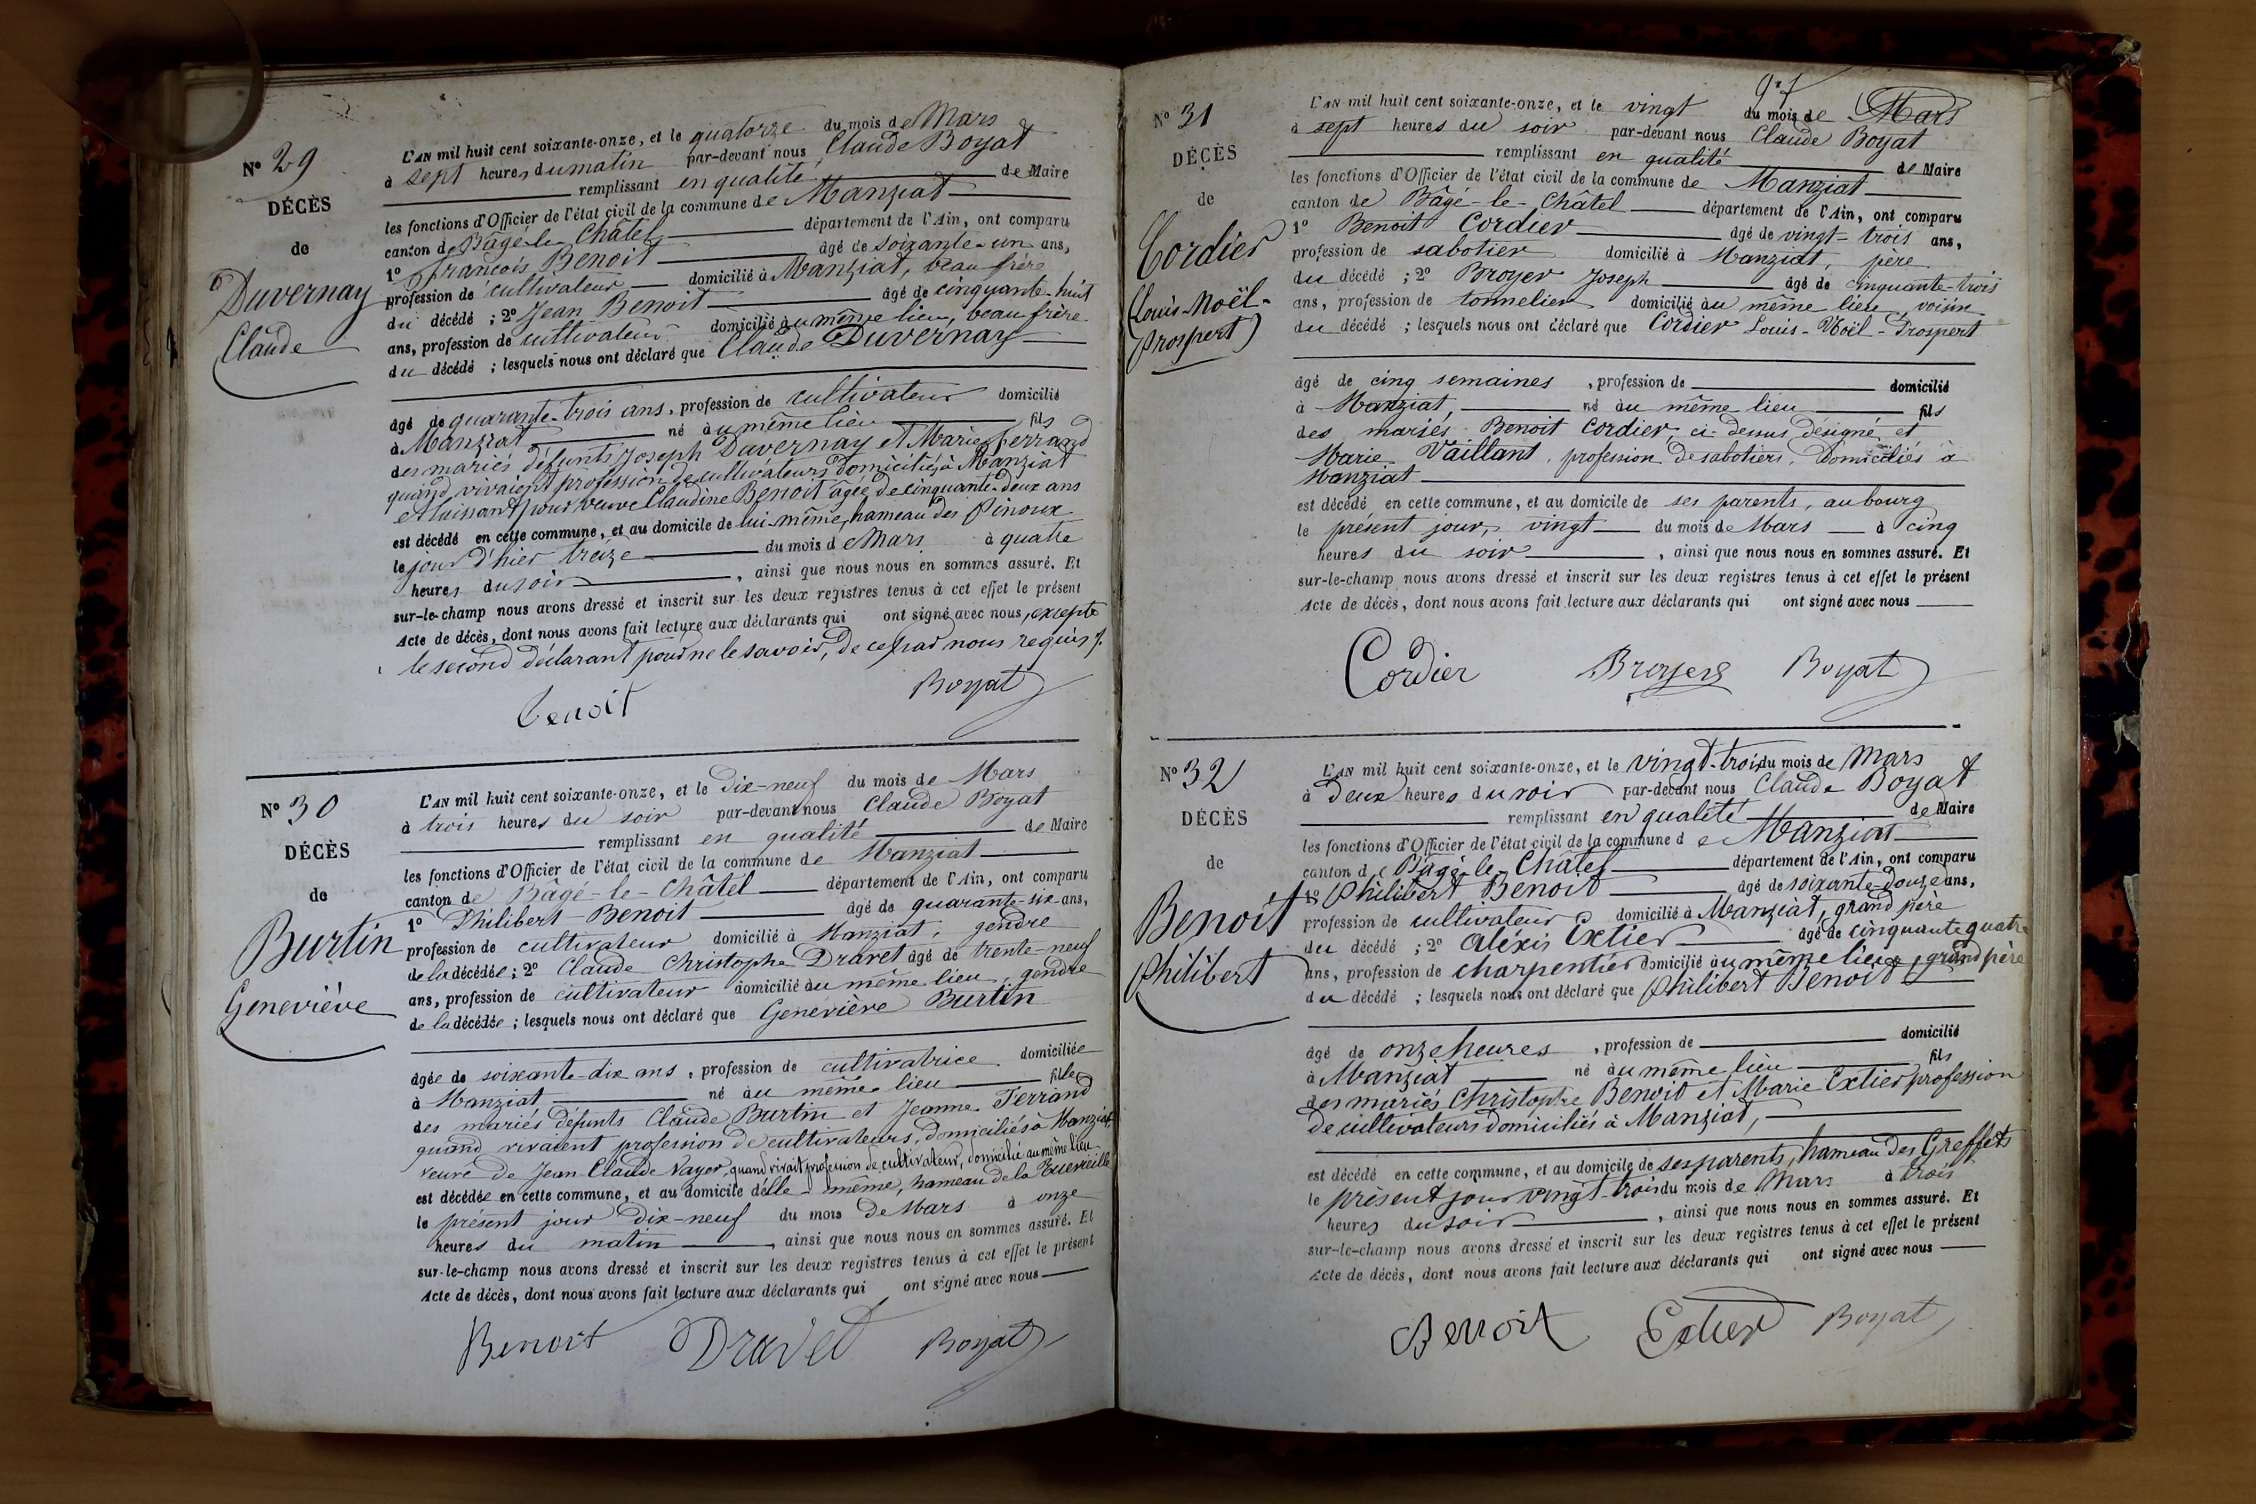 N° 29
DÉCÈS
de
Duvernay
Claude
L'AN mil huit cent soixante-onze, et le quatorze du mois de Mars
à sept heures du matin par-devant nous Claude Boyat
remplissant en qualité de Maire
les fonctions d'Officier de l'état civil de la commune de Manziat
canton de Bâgé-le-Châtel département de l'Ain, ont comparu
1° François Benoit âgé de soixante-un ans,
profession de cultivateur domicilié à Manziat, beau frère
du décédé ; 2° Jean Benoit âgé de cinquante-huit
ans, profession de cultivateur domicilié au même lieu, beau frère
du décédé ; lesquels nous ont déclaré que Claude Duvernay
âgé de quarante-trois ans, profession de cultivateur domicilié
à Manziat né au même lieu fils
des mariés défunts Joseph Duvernay et Marie Ferrand
quand vivaient profession de cultivateurs domiciliés à Manziat
et laissant pour veuve Claudine Benoit âgée de cinquante-deux ans
est décédé en cette commune, et au domicile de lui-même, hameau des Pinoux
le jour d'hier treize du mois de Mars à quatre
heures du soir, ainsi que nous nous en sommes assuré. Et
sur-le-champ nous avons dressé et inscrit sur les deux registres tenus à cet effet le présent
Acte de décès, dont nous avons fait lecture aux déclarants qui ont signé avec nous, excepté
le second déclarant pour ne le savoir, de ce par nous requis
Benoit Boyat
N° 30
DÉCÈS
de
Burtin
Geneviève
L'AN mil huit cent soixante-onze, et le dix-neuf du mois de Mars
à trois heures du soir par-devant nous Claude Boyat
remplissant en qualité de Maire
les fonctions d'Officier de l'état civil de la commune de Manziat
canton de Bâgé-le-Châtel département de l'Ain, ont comparu
1° Philibert Benoit âgé de quarante-six ans,
profession de cultivateur domicilié à Manziat, gendre
de la décédée ; 2° Claude Christophe Dravet âgé de trente-neuf
ans, profession de cultivateur domicilié au même lieu, gendre
de la décédée ; lesquels nous ont déclaré que Geneviève Burtin
âgée de soixante-dix ans, profession de cultivatrice domiciliée
à Manziat né au même lieu fille
des mariés défunts Claude Burtin et Jeanne Ferrand
quand vivaient profession de cultivateurs, domiciliés à Manziat
veuve de Jean Claude Nayer, quand vivait profession de cultivateur, domicilié au même lieu
est décédée en cette commune, et au domicile d'elle-même, hameau de la
le présent jour dix-neuf du mois de Mars à onze
heures du matin, ainsi que nous nous en sommes assuré. Et
sur-le-champ nous avons dressé et inscrit sur les deux registres tenus à cet effet le présent
Acte de décès, dont nous avons fait lecture aux déclarants qui ont signé avec nous
Benoit Dravet Boyat
97
N° 31
DÉCÈS
de
Cordier
(Louis-Noël-
Prospert)
L'AN mil huit cent soixante-onze, et le vingt du mois de Mars
à sept heures du soir par-devant nous Claude Boyat
remplissant en qualité de Maire
les fonctions d'Officier de l'état civil de la commune de Manziat
canton de Bâgé-le-Châtel département de l'Ain, ont comparu
1° Benoit Cordier âgé de vingt-trois ans,
profession de sabotier domicilié à Manziat, père
du décédé ; 2° Broyer Joseph âgé de cinquante-trois
ans, profession de tonnelier domicilié au même lieu, voisin
du décédé ; lesquels nous ont déclaré que Cordier Louis-Noël-Prospert
âgé de cinq semaines, profession de domicilié
à Manziat, né au même lieu fils
des mariés Benoit Cordier, ci-dessus désigné et
Marie Vaillant, profession de sabotiers, domiciliés à
Manziat
est décédé en cette commune, et au domicile de ses parents, au bourg
le présent jour, vingt du mois de Mars à cinq
heures du soir, ainsi que nous nous en sommes assuré. Et
sur-le-champ nous avons dressé et inscrit sur les deux registres tenus à cet effet le présent
Acte de décès, dont nous avons fait lecture aux déclarants qui ont signé avec nous
Cordier Broyer Boyat
N° 32
DÉCÈS
de
Benoit
Philibert
L'AN mil huit cent soixante-onze, et le vingt-trois du mois de Mars
à deux heures du soir par-devant nous Claude Boyat
remplissant en qualité de Maire
les fonctions d'Officier de l'état civil de la commune de Manziat
canton de Bâgé-le-Châtel département de l'Ain, ont comparu
1° Philibert Benoit âgé de soixante-douze ans,
profession de cultivateur domicilié à Manziat, grand père
du décédé ; 2° Aléxis Extier âgé de cinquante quatre
ans, profession de charpentier domicilié au même lieu, grand père
du décédé ; lesquels nous ont déclaré que Philibert Benoit
âgé de onze heures, profession de domicilié
à Manziat né au même lieu fils
des mariés Christophe Benoit et Marie Extier profession
de cultivateurs domiciliés à Manziat,
est décédé en cette commune, et au domicile de ses parents, hameau des Greffets
le présent jour vingt-trois du mois de Mars à trois
heures du soir, ainsi que nous nous en sommes assuré. Et
sur-le-champ nous avons dressé et inscrit sur les deux registres tenus à cet effet le présent
Acte de décès, dont nous avons fait lecture aux déclarants qui ont signé avec nous
Benoit Extier Boyat